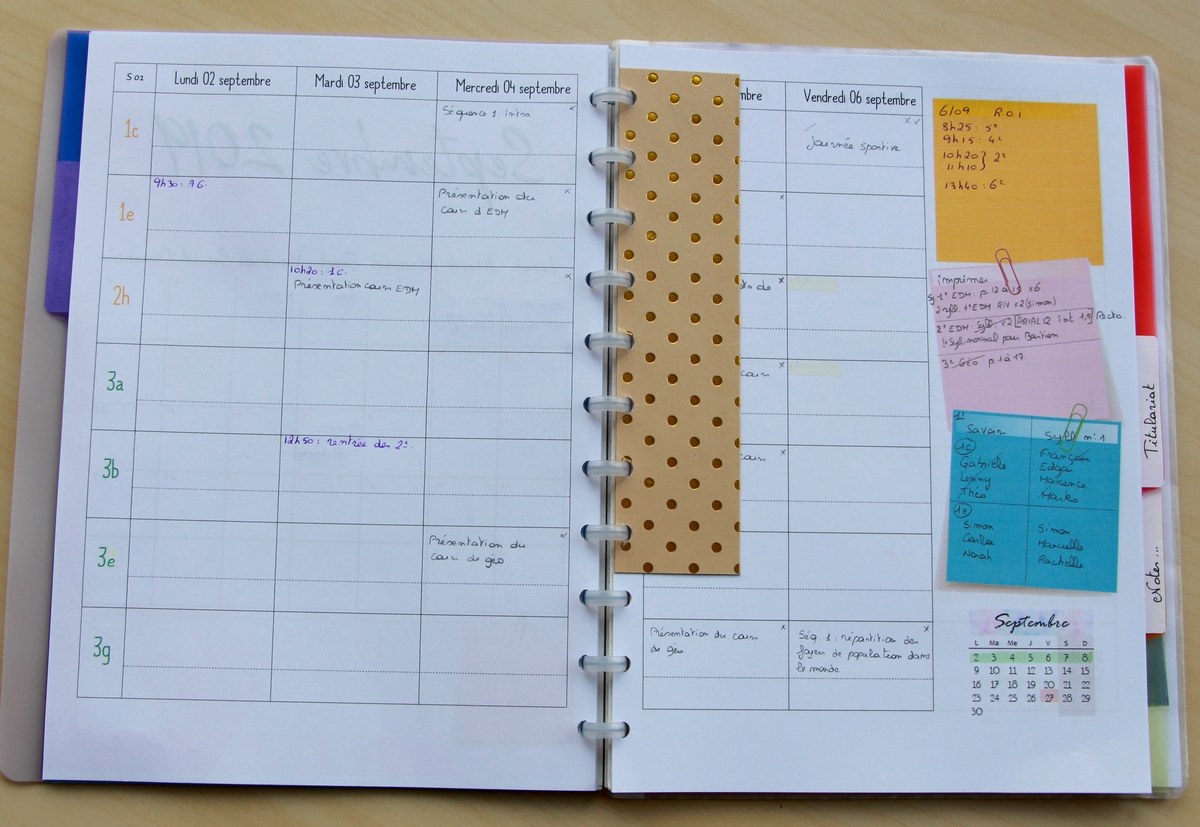 S 01
Lundi 02 septembre
Mardi 03 septembre
Mercredi 04 septembre
1c
Séquence 1 intro
1e
9h30 : AG.
Présentation du
cours d'EDM
2h
10h20 : 1c.
Présentation cours EDM
3a
3b
12h50 : rentrée des 2e.
3e
Présentation du
cours de géo
3g
mbre
Vendredi 06 septembre
Journée sportive
de
cours
cours
Présentation du cours
de géo
Séq 1 : répartition des
foyers de population dans
le monde
6/09 R.O.I
8h25 : 5e
9h15 : 4e
10h20 } 2e
11h10
13h40 : 6e
imprimer
1e EDM : p. 12 à 15 x6
1e EDM RIV x2 (Simon)
2e EDM Syll x2 [ARIAL 12 int 1,5] Recto.
Syll normal pour Bastien
3e Géo p. 1 à 17
1e
Savoir
Syll n°1
1c
Gabrielle
Lenny
Théo
François
Edgar
Maxence
Marko
1e
Simon
Carla
Norah
Simon
Manuella
Rachelle
Titulariat
Notes...
Septembre
L Ma Me J V S D
2 3 4 5 6 7 8
9 10 11 12 13 14 15
16 17 18 19 20 21 22
23 24 25 26 27 28 29
30